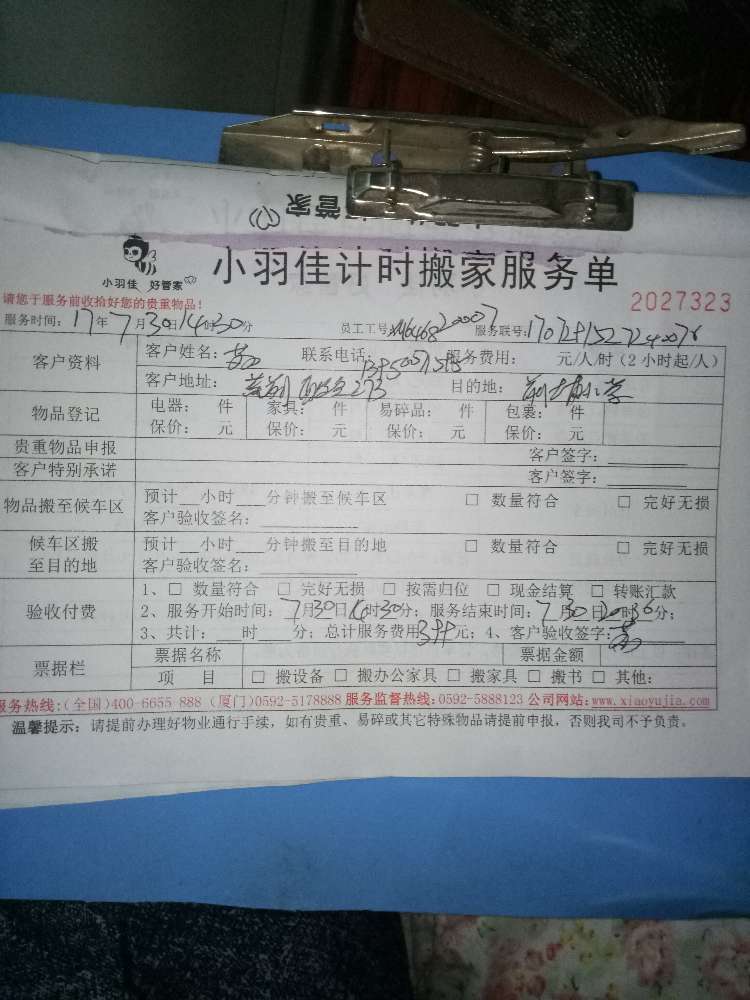 小羽佳 好管家
小羽佳计时搬家服务单
2027323
请您于服务前收拾好您的贵重物品!
服务时间: 17年7月30日14时30分 员工工号: 服务联号:
客户资料
客户姓名: 联系电话: 服务费用: 元/人/时(2小时起/人)
客户地址: 目的地:
物品登记
电器: 件 家具: 件 易碎品: 件 包裹: 件
保价: 元 保价: 元 保价: 元 保价: 元
贵重物品申报 客户签字:
客户特别承诺 客户签字:
物品搬至候车区
预计__小时___分钟搬至候车区 □ 数量符合 □ 完好无损
客户验收签名:
候车区搬至目的地
预计__小时___分钟搬至目的地 □ 数量符合 □ 完好无损
客户验收签名:
验收付费
1、□ 数量符合 □ 完好无损 □ 按需归位 □ 现金结算 □ 转账汇款
2、服务开始时间: 7月30日 时30分; 服务结束时间: 7月30日 时 分;
3、共计: 时 分; 总计服务费用 元; 4、客户验收签字:
票据栏
票据名称 票据金额
项 目 □ 搬设备 □ 搬办公家具 □ 搬家具 □ 搬书 □ 其他:
服务热线:(全国)400-6655 888 (厦门)0592-5178888 服务监督热线:0592-5888123 公司网站:www.xiaoyujia.com
温馨提示: 请提前办理好物业通行手续,如有贵重、易碎或其它特殊物品请提前申报,否则我司不予负责。